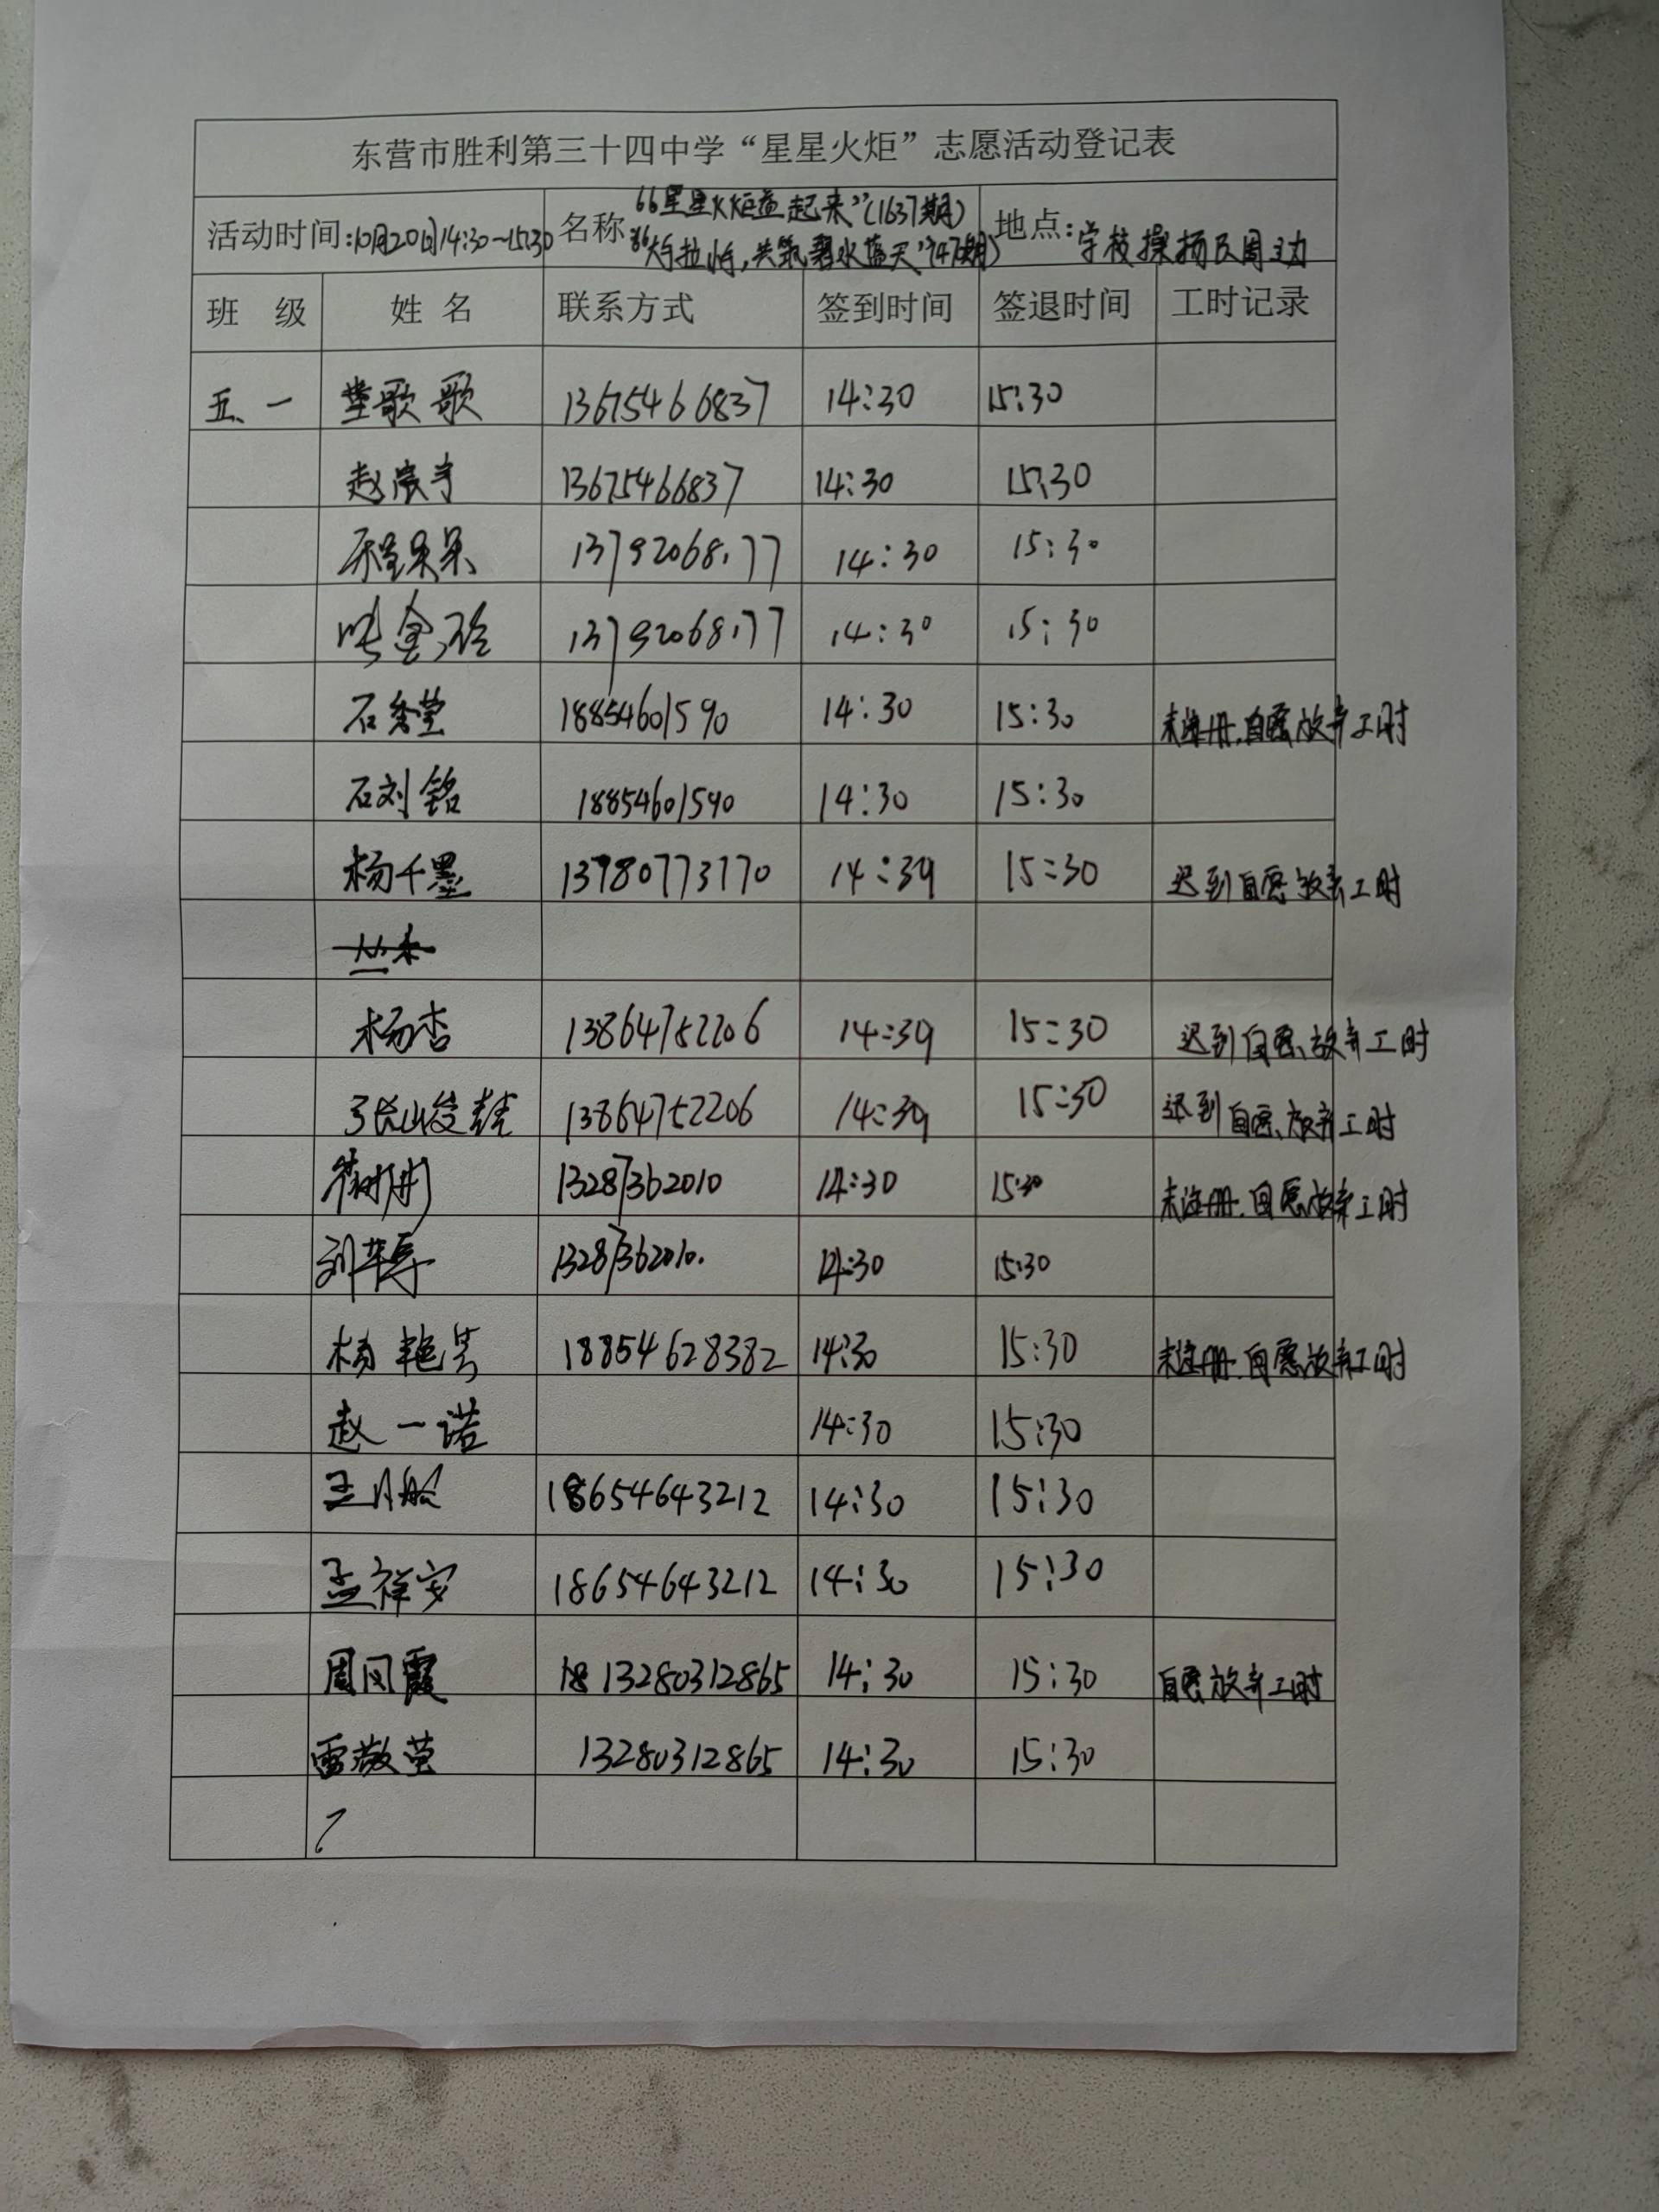 东营市胜利第三十四中学“星星火炬”志愿活动登记表
活动时间:10月20日14:30~15:30 名称 “星星火炬益起来”(1637期) 地点:学校操场及周边
“大手拉小手,共筑碧水蓝天”(47期)
班 级 姓 名 联系方式 签到时间 签退时间 工时记录
五、一 歌歌 13675466837 14:30 15:30
赵宸宇 13675466837 14:30 15:30
程呆呆 13792068177 14:30 15:30
张金玲 13792068177 14:30 15:30
石秀莹 18854601590 14:30 15:30 未注册.自愿放弃工时
石刘铭 18854601590 14:30 15:30
杨千墨 13780773770 14:39 15:30 迟到自愿放弃工时
杨杏 13864752206 14:39 15:30 迟到自愿放弃工时
张峻赫 13864752206 14:39 15:30 迟到自愿放弃工时
13287362010 14:30 15:30 未注册.自愿放弃工时
刘 13287362010. 14:30 15:30
杨艳芳 18854628382 14:30 15:30 未注册.自愿放弃工时
赵一诺 14:30 15:30
王月船 18654643212 14:30 15:30
孟祥安 18654643212 14:30 15:30
周风霞 13280312865 14:30 15:30 自愿放弃工时
雷敬莹 13280312865 14:30 15:30